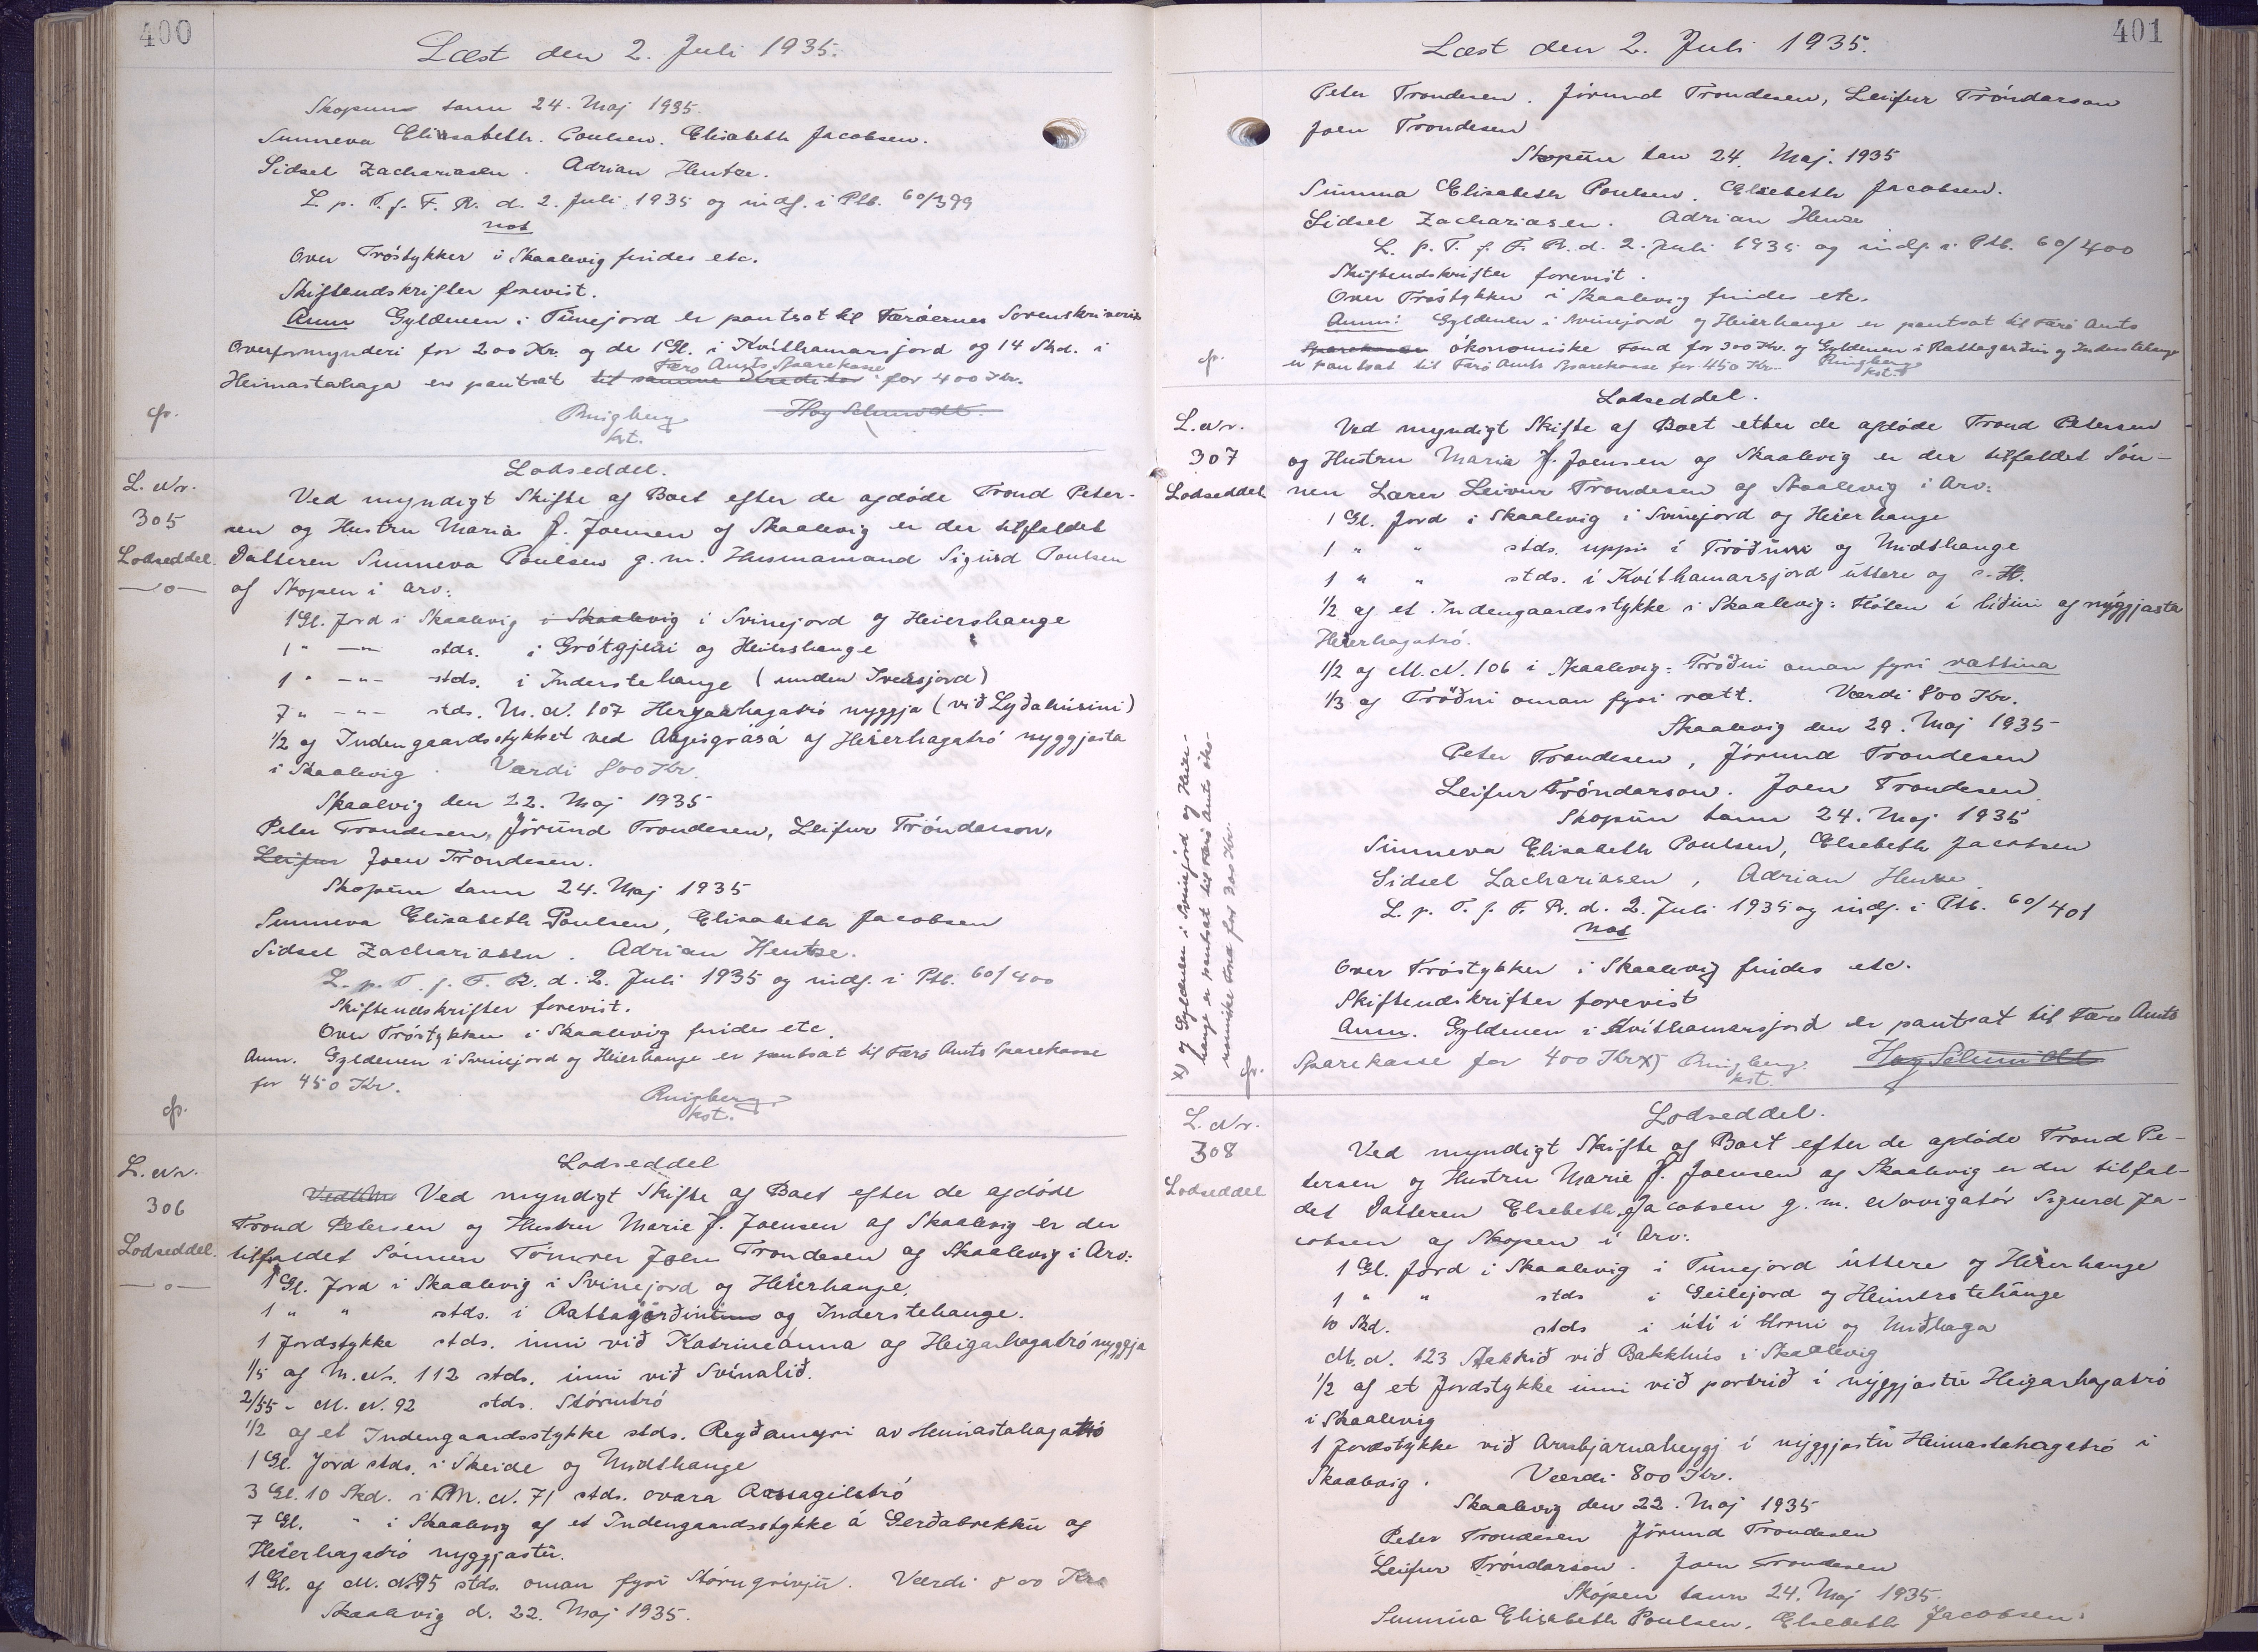 400
Læst den 2. Juli 1935.
Skopun tann 24. Maj 1935.
Sunneva Elisabeth Poulsen. Elisabeth Jacobsen.
Sidsel Zachariasen. Adrian Hentze.
L. p. T. f. F. R. d. 2. Juli 1935 og indf. i Ptb. 60/399
not
Over Tröstykker i Skaalevig findes etc.
Skifteudskrifter forevist.
Anm Gyldenen i Tunejord er pantsat til Færöernes Sorenskriveris
Overformynderi for 200 Kr. og de 1 Gl. i Kvíthamarsjord og 14 Skd. i
Heimastahaga er pantsat til samme Kreditor Færö Amts Sparekasse for 400 Kr.
cp.
Ringberg
kst.
Høg Schmidt
L. Nr.
305
Lodseddel
—o—
Lodseddel.
Ved myndigt Skifte af Boet efter de afdöde Trond Peter-
sen og Hustru Maria f. Joensen af Skaalevig er der tilfaldet
Datteren Sunneva Poulsen g. m. Husmamand Sigurd Poulsen
af Skopen i Arv:
1 Gl. Jord i Skaalevig i Skaalevig i Svinejord og Heiershauge
1 " —"— stds. i Grótgjeiri og Heiershauge
1 " —"— stds. i Inderstehauge (unden Iversjord)
7 " —"— stds. M. N. 107 Heryaarhagatró nyggja (við Lyðahúsini)
1/2 af Indengaardsstykket ved Aagisgrásá af Heierhagatró nyggjasta
i Skaalevig. Værdi 800 Kr.
Skaalvig den 22. Maj 1935
Peter Trondesen, Jórund Trondesen, Leifur Tróndarson,
Leifur Joen Trondesen.
Skopun tann 24. Maj 1935
Sunneva Elisabeth Poulsen, Elisabeth Jacobsen
Sidsel Zachariasen. Adrian Hentze.
L. p. T. f. F. R. d. 2. Juli 1935 og indf. i Ptb. 60/400
Skifteudskrifter forevist.
Over Tröstykker i Skaalevig findes etc.
Anm. Gyldenen i Svinejord og Heierhauge er pantsat til Færö Amts Sparekasse
for 450 Kr.
cp.
Ringberg
kst.
L. Nr.
306
Lodseddel.
—o—
Lodseddel
Ved myndigt Skifte af Boet efter de afdöde
Trond Petersen og Hustru Marie f. Joensen af Skaalevig er der
tilfaldet Sönnen Tömrer Joen Trondesen af Skaalevig i Arv:
1 Gl. Jord i Skaalevig i Svinejord og Heierhauge.
1 " " stds. i Rattagerðinum og Inderstehauge.
1 Jordstykke stds. inni við Katrineánna af Heigarhagatró nyggja
1/5 af M. Nr. 112 stds. inni við Svínalið.
2/55 - M. N. 92 stds. Stórutró
1/2 af et Indengaardsstykke stds. Reyðamyri av Heimastahagatró
1 Gl. Jord stds. i Skeide og Midthauge
3 Gl. 10 Skd. i M. N. 71 stds. ovara Rassagilstró
7 Gl. " i Skaalevig af et Indengaardsstykke á Gerðabrekku og
Heierhagatró nyggjastu.
1 Gl. af M. N. 95 stds. oman fyri Stórugrivju. Værdi 800 Kr.
Skaalevig d. 22. Maj 1935.
401
Læst den 2. Juli 1935.
Peter Trondesen. Jórund Trondesen, Leifur Tróndarson
Joen Trondesen
Skopun tan 24. Maj. 1935
Sunnva Elisabeth Poulsen. Elsebeth Jacobsen.
Sidsel Zachariasen. Adrian Henze
L. p. T. f. F. R. d. 2. Juli 1935 og indf. i Ptb. 60/400
Skifteudskrifter forevist.
Over Tröstykker i Skaalevig findes etc.
Anm: Gyldenen i Svinejord og Heierhauge er pantsat til Færö Amts
Sparekasse ökonomiske Fond for 300 Kr. og Gyldenen i Rattagarðin og Inderstehauge
er pantsat til Færö Amts Sparekasse for 450 Kr. Ringberg
kst.
cp.
L. Nr.
307
Lodseddel
Lodseddel.
Ved myndigt Skifte af Boet efter de afdöde Trond Petersen
og Hustru Maria f. Joensen af Skaalevig er der tilfaldet Sön-
nen Lærer Leivur Trondesen af Skaalevig i Arv:
1 Gl. Jord i Skaalevig i Svinejord og Heierhauge
1 " " stds. uppi í Tröðuni og Midthauge
1 " " stds. i Kvíthamarsjord úttere og s. H.
1/2 af et Indengaardsstykke i Skaalevig: Flöten í liðini af nýggjasta
Heierhagatró.
1/2 af M. N. 106 i Skaalevig: Tröðni oman fyri rattina
1/3 af Tröðni oman fyri ratt. Værdi 800 Kr.
Skaalevig den 29. Maj 1935
Peter Trondesen, Jórund Trondesen
Leifur Tróndarson. Joen Trondesen
Skopun tann 24. Maj 1935
Sunneva Elisabeth Poulsen, Elsebeth Jacobsen
Sidsel Zachariasen, Adrian Henze
L. p. T. f. F. R. d. 2. Juli 1935 og indf. i Ptb. 60/401
not
Over Tröstykker i Skaalevig findes etc.
Skifteudskrifter forevist
Anm. Gyldenen i Kvíthamarsjord er pantsat til Færö Amts
Sparekasse for 400 Kr x) Ringberg.
kst.
Høg Schmidt
x) og Gyldenen i Svinejord og Heier-
hauge er pantsat til Færö Amts öko-
nomiske Fond for 300 Kr.
cp.
L. Nr.
308
Lodseddel
Lodseddel.
Ved myndigt Skifte af Boet efter de afdöde Trond Pe-
tersen og Hustru Marie f. Joensen af Skaalevig er der tilfal-
det Datteren Elsebeth Jacobsen g. m. Navigatör Sigurd Ja-
cobsen af Skopen i Arv:
1 Gl. Jord i Skaalevig i Tunejord úttere og Heierhauge
1 " " stds i Geilejord og Heimerstehauge
10 Skd. stds i úti í Horni og Miðhaga
M. N. 123 Stakkið við Bakkhús i Skaalevig
1/2 af et Jordstykke inni við portrið i nýggjastu Heigarhagatró
i Skaalevig
1 Jordstykke við Arnbjarnaheyggj í nýggjastu Heimastahagatró i
Skaalevig. Værdi 800 Kr.
Skaalevig den 22. Maj 1935
Peter Trondesen Jórund Trondesen
Leifur Tróndarson. Joen Trondesen
Skópen tann 24. Maj 1935.
Sunnva Elisabeth Poulsen. Elsebeth Jacobsen.